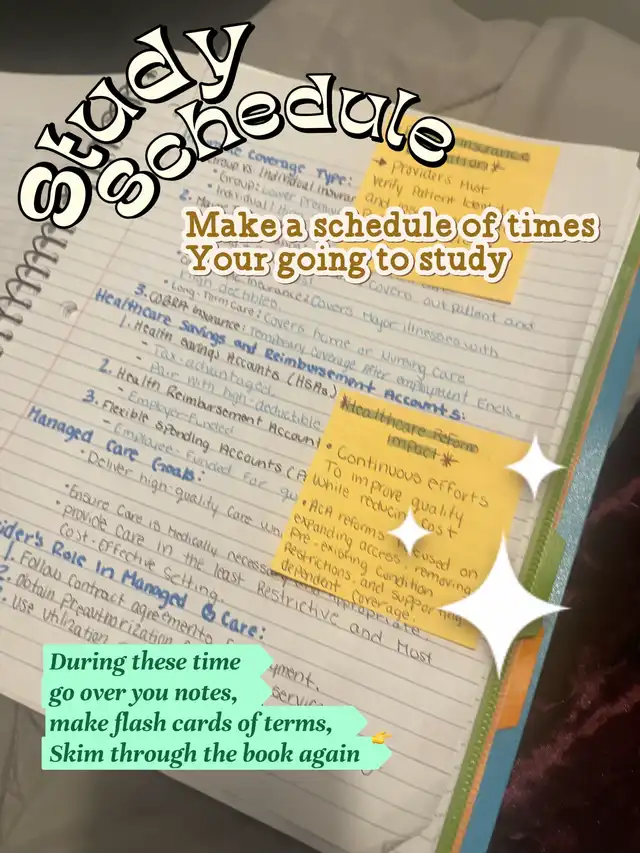 Study
Schedule
Make a schedule of times
Your going to study
Coverage Type:
Group vs. Individual Insurance
Group: Lower
Individual
Insurance: Covers Major illnesses with
Covers outpatient and
high deductibles.
Long-Term Care: Covers home or Nursing Care
3. COBRA Insurance: Temporary Coverage After employment Ends.
Healthcare Savings and Reimbursement Accounts:
1. Health Savings Accounts (HSAs)
- Tax-advantaged
Pair with high-deductible
2. Health Reimbursement Account
- Employer-Funded
3. Flexible Spending Accounts (
- Employee-Funded For
Managed Care Goals:
• Deliver high-quality Care
• Ensure Care is Medically necessary and appropriate.
• Provide Care in the least Restrictive and Most
Cost-Effective Setting.
ider's Role in Managed Care:
1. Follow Contract agreements
2. Obtain Preauthorization
Use Utilization
Insurance
→ Providers Must
Verify Patient
and
*Healthcare Reform
Impact*
• Continuous efforts
To improve quality
while reducing Cost
• ACA reforms focused on
expanding access, removing
Pre-existing Condition
Restrictions, and supporting
dependent Coverage.
During these time
go over you notes,
make flash cards of terms,
Skim through the book again